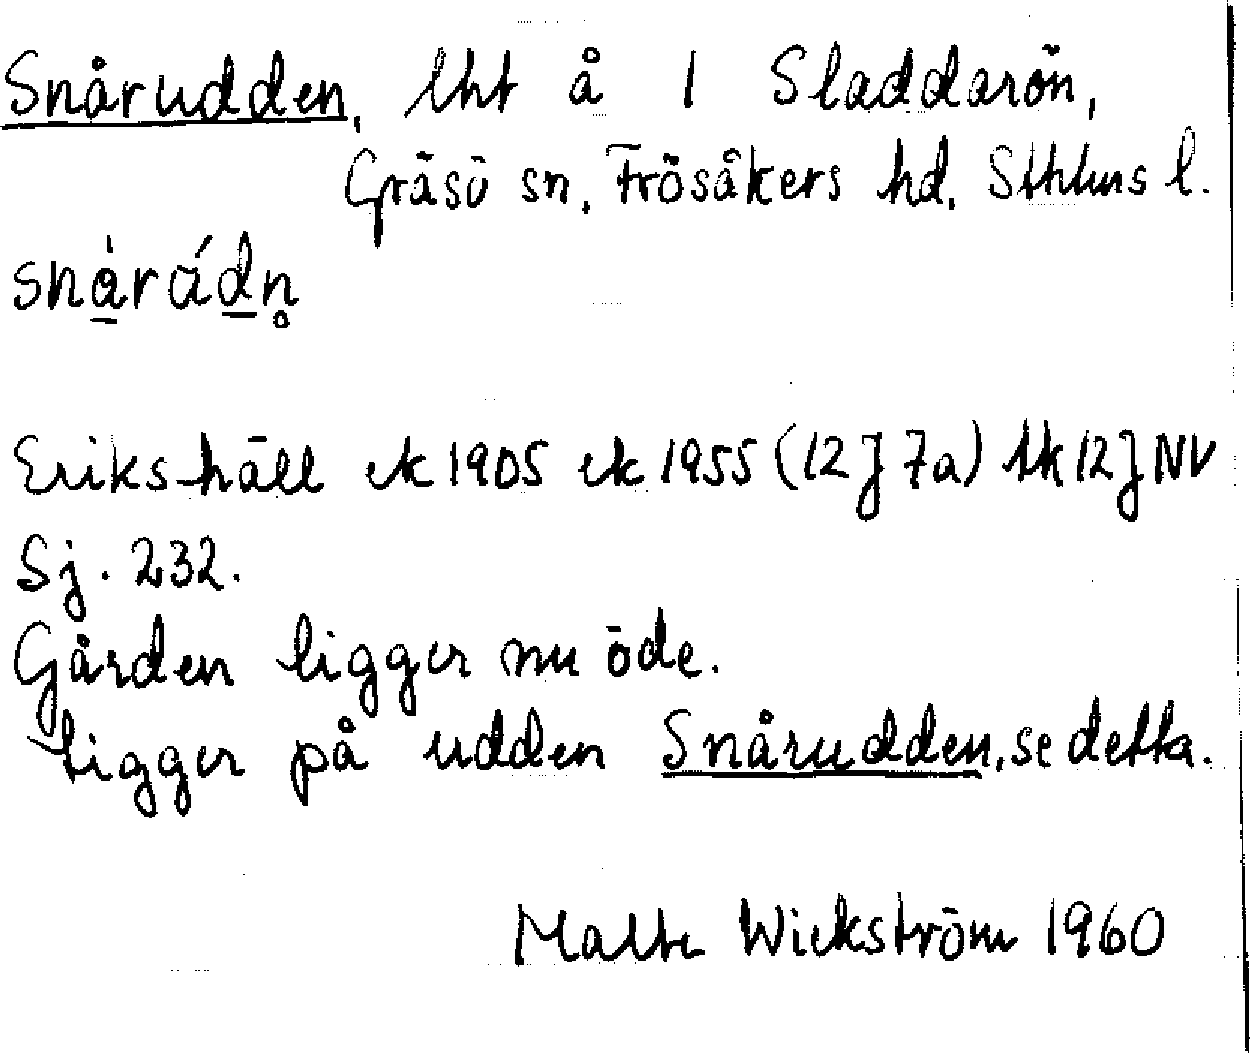 Snårudden, lht å 1 Sladdarön,
Gräsö sn, Frösåkers hd, Sthlms l.
Erikshäll ek 1905 ek 1955 (12J 7a) tk 12J NV
Sj. 232.
Gården ligger nu öde.
Ligger på udden Snårudden, se detta.
Malte Wickström 1960